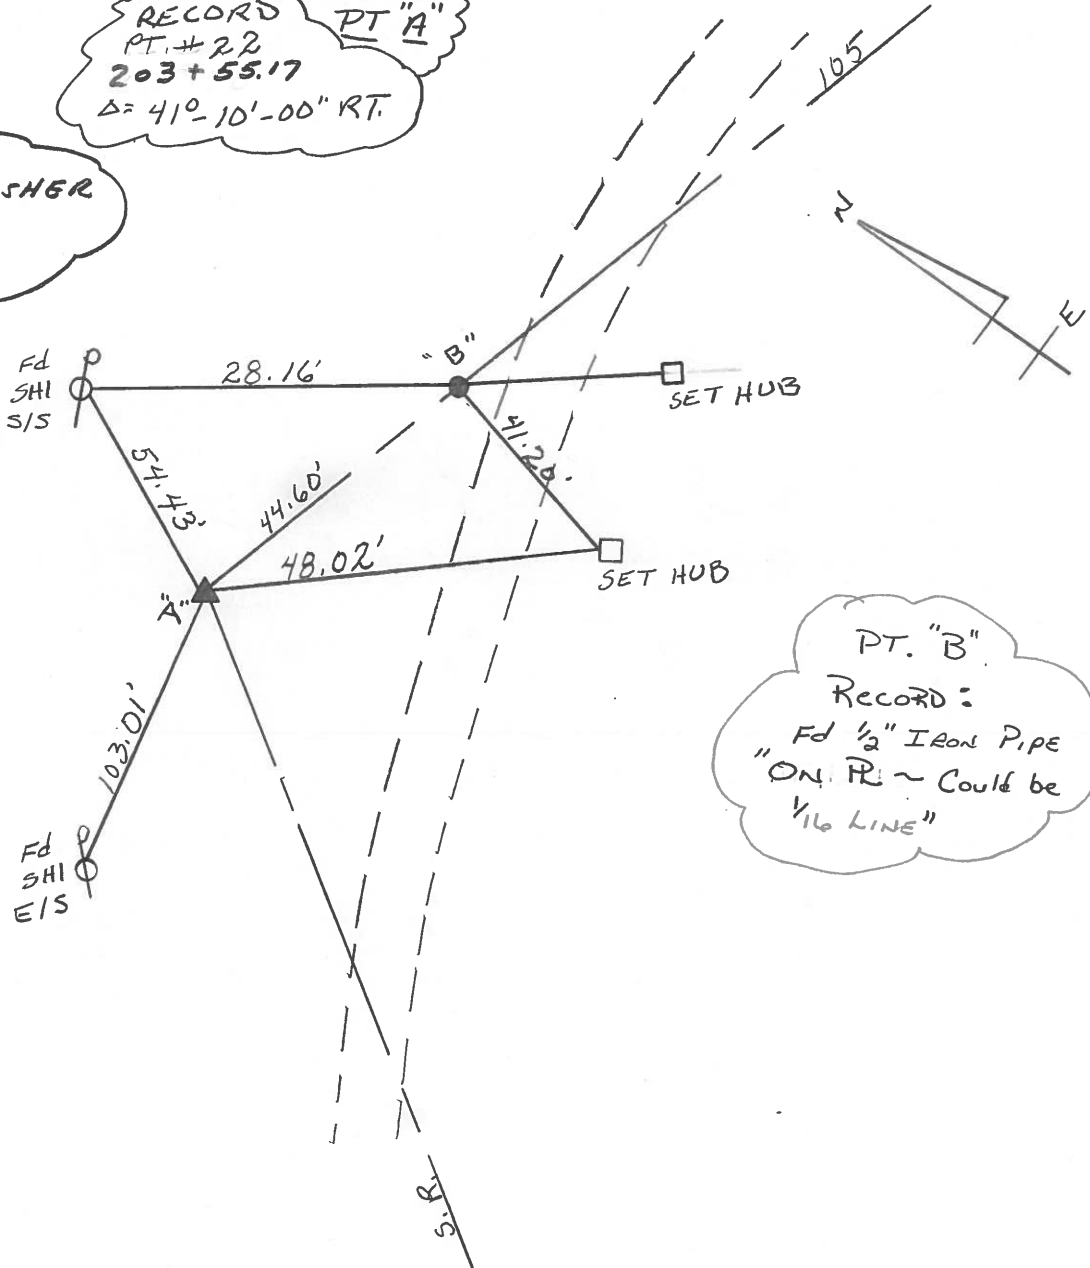 RECORD
PT. # 22
203 + 55.17
Δ= 41°-10'-00" RT.
PT "A"
SHER
105
N
E
Fd
SHI
S/S
28.16'
"B"
SET HUB
54.43'
44.60'
41.20'
48.02'
SET HUB
"A"
103.01'
Fd
SHI
E/S
PT. "B"
RECORD:
Fd 1/2" IRON PIPE
"ON PL ~ Could be
1/16 LINE"
S.R.